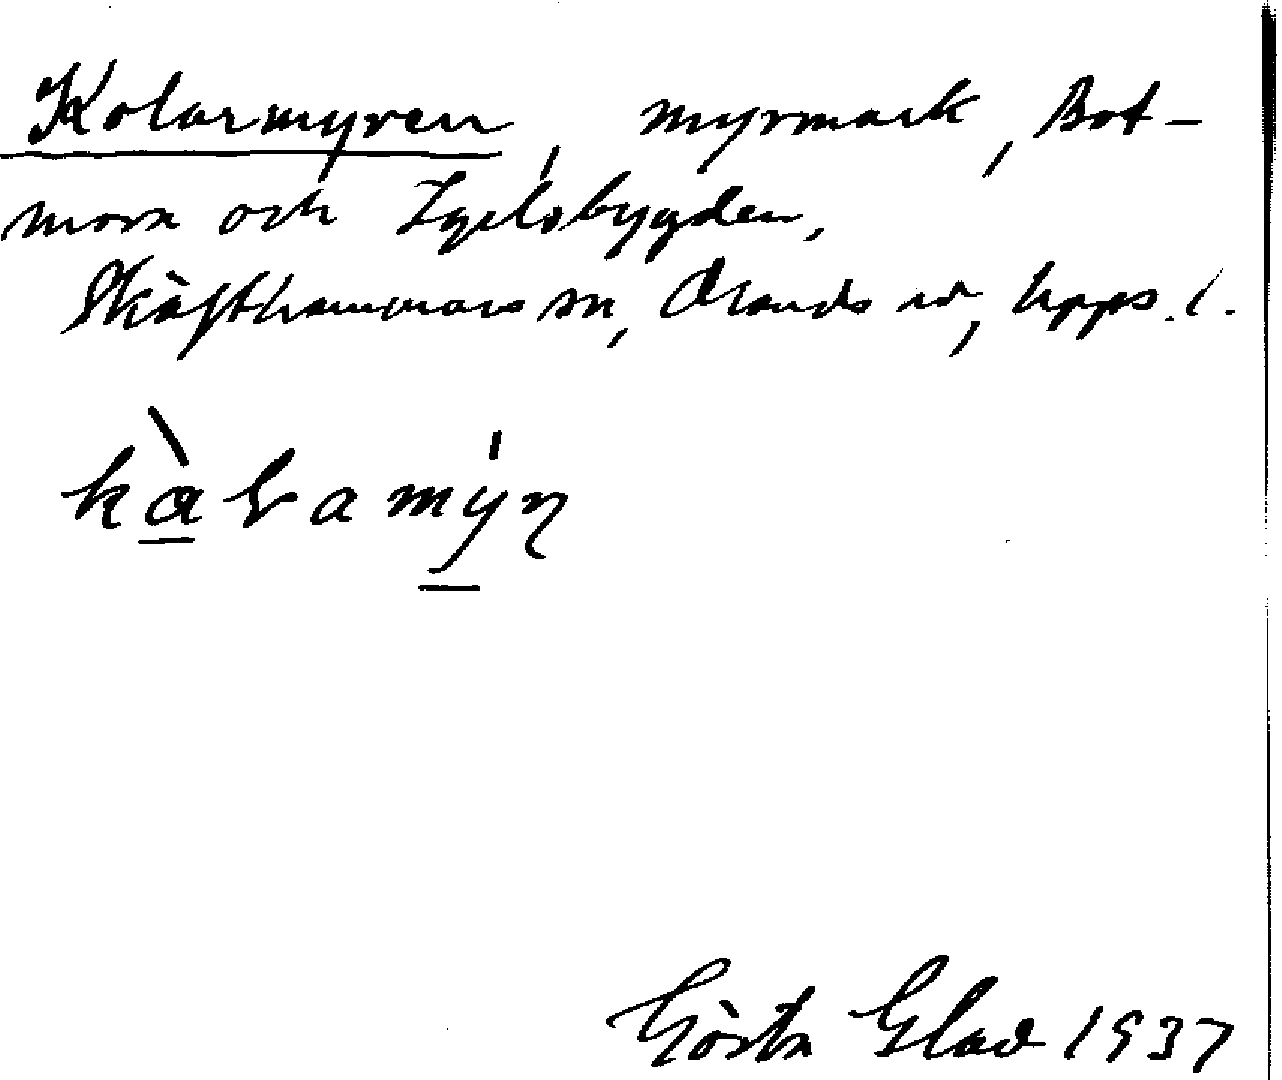 Kolarmyren, myrmark, Bot-
mora och Igelsbygden,
Skäfthammars sn, Olands hd, Upps. l.
Gösta Glad 1937